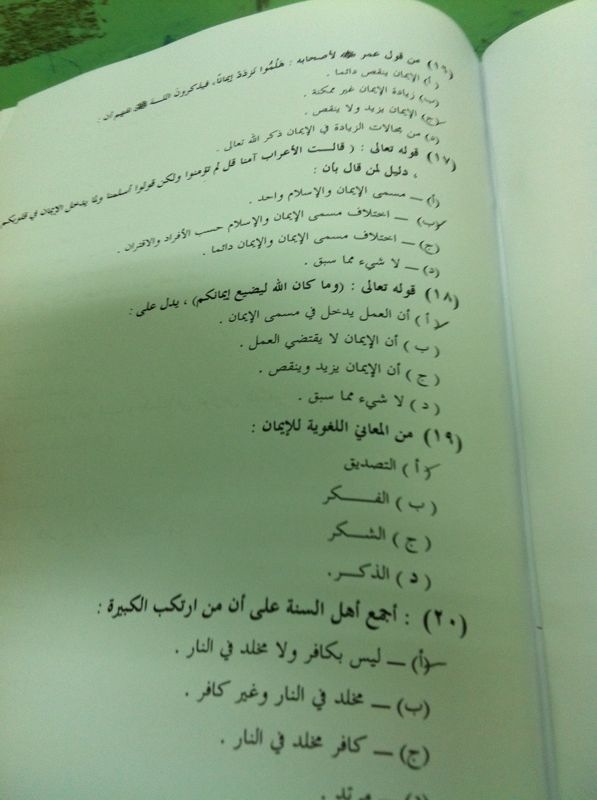 (١٦) من قول عمر ﷺ لأصحابه : هَلُمُّوا نَزدَدْ إيمانًا، فيذكرون الله ﷻ نفهم أن :
(أ) الإيمان ينقص دائما .
(ب) زيادة الإيمان غير ممكنة .
(ج) الإيمان يزيد ولا ينقص .
(د) من مجالات الزيادة في الإيمان ذكر الله تعالى .
(١٧) قوله تعالى : ( قالت الأعراب آمنا قل لم تؤمنوا ولكن قولوا أسلمنا ولما يدخل الإيمان في قلوبكم
، دليل لمن قال بأن :
(أ) ــ مسمى الإيمان والإسلام واحد .
(ب) ــ اختلاف مسمى الإيمان والإسلام حسب الأفراد والاقتران .
(ج) ــ اختلاف مسمى الإيمان والإيمان دائما .
(د) ــ لا شيء مما سبق .
(١٨) قوله تعالى : (وما كان الله ليضيع إيمانكم) ، يدل على :
( أ ) أن العمل يدخل في مسمى الإيمان .
( ب ) أن الإيمان لا يقتضي العمل .
( ج ) أن الإيمان يزيد وينقص .
( د ) لا شيء مما سبق .
(١٩) من المعاني اللغوية للإيمان :
( أ ) التصديق
( ب ) الفــكر
( ج ) الشــكر
( د ) الذكــر .
(٢٠) : أجمع أهل السنة على أن من ارتكب الكبيرة :
(أ) ــ ليس بكافر ولا مخلد في النار .
(ب) ــ مخلد في النار وغير كافر .
(ج) ــ كافر مخلد في النار .
(د) ــ مرتد .